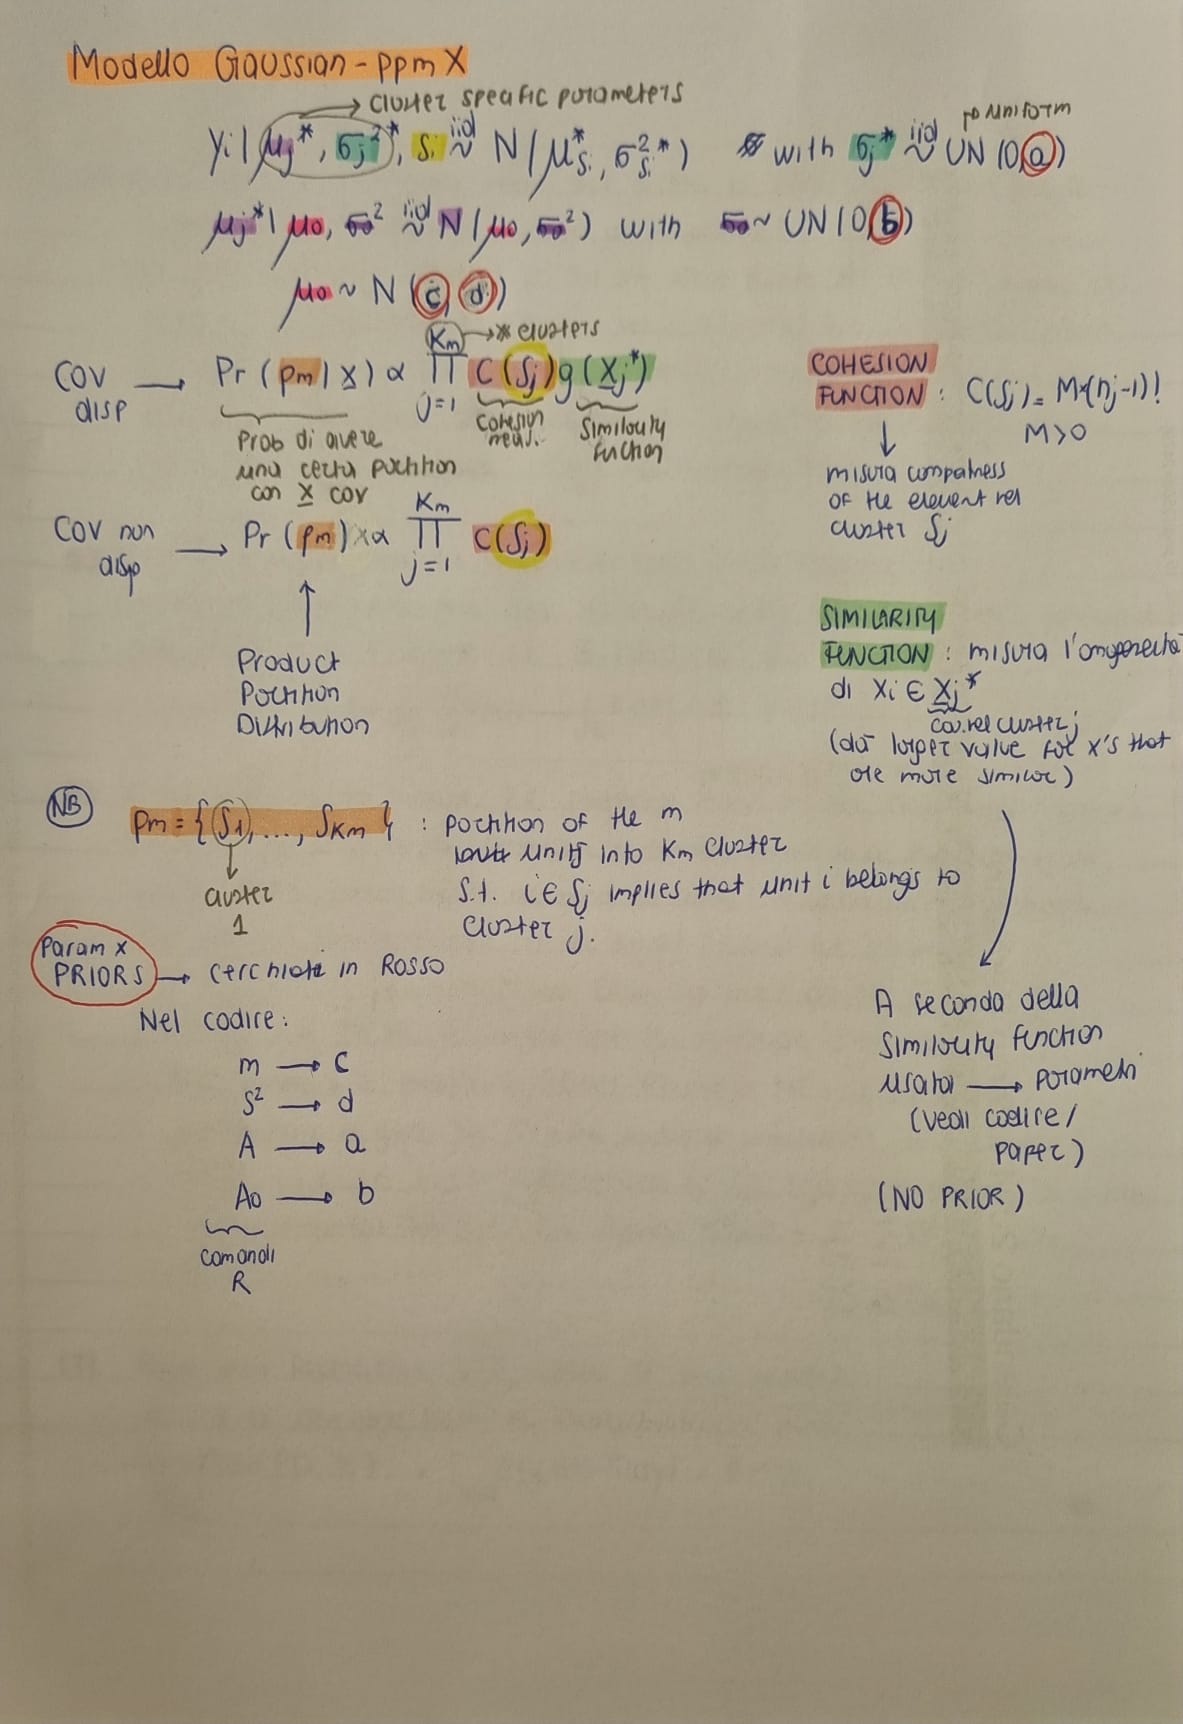 Modello Gaussian - ppmx
→ cluster specific parameters
Yi | μj*, σj²*, Si iid ~ N(μ*Si, σ²*Si) with σj* iid ~ UN(0, a)
→ uniform
μj* | μ0, σ0² iid ~ N(μ0, σ0²) with σ0 ~ UN(0, b)
μ0 ~ N(c, d)
→ # clusters
COV disp → Pr(ρm | x) ∝ ∏ j=1 Km C(Sj) g(Xj*)
Prob di avere
una certa partition
con x cov
Cohesion
meas.
Similarity
function
COV non disp → Pr(ρm) ∝ ∏ j=1 Km C(Sj)
↑
Product
Partition
Distribution
COHESION
FUNCTION : C(Sj) = M×(nj-1)!
M>0
↓
misura compatness
of the element nel
cluster Sj
SIMILARITY
FUNCTION : misura l'omogeneità
di xi ∈ Xj*
cov. nel cluster j
(dà larger value for x's that
are more similar)
NB
ρm = {S1, ..., SKm} : partition of the m
units into Km cluster
s.t. i ∈ Sj implies that unit i belongs to
cluster j.
↓
cluster
1
Param x
PRIORS → cerchiati in ROSSO
Nel codice:
m → c
s² → d
A → a
A0 → b
comandi
R
A seconda della
similarity function
usata → parametri
(vedi codice/
paper)
(NO PRIOR)